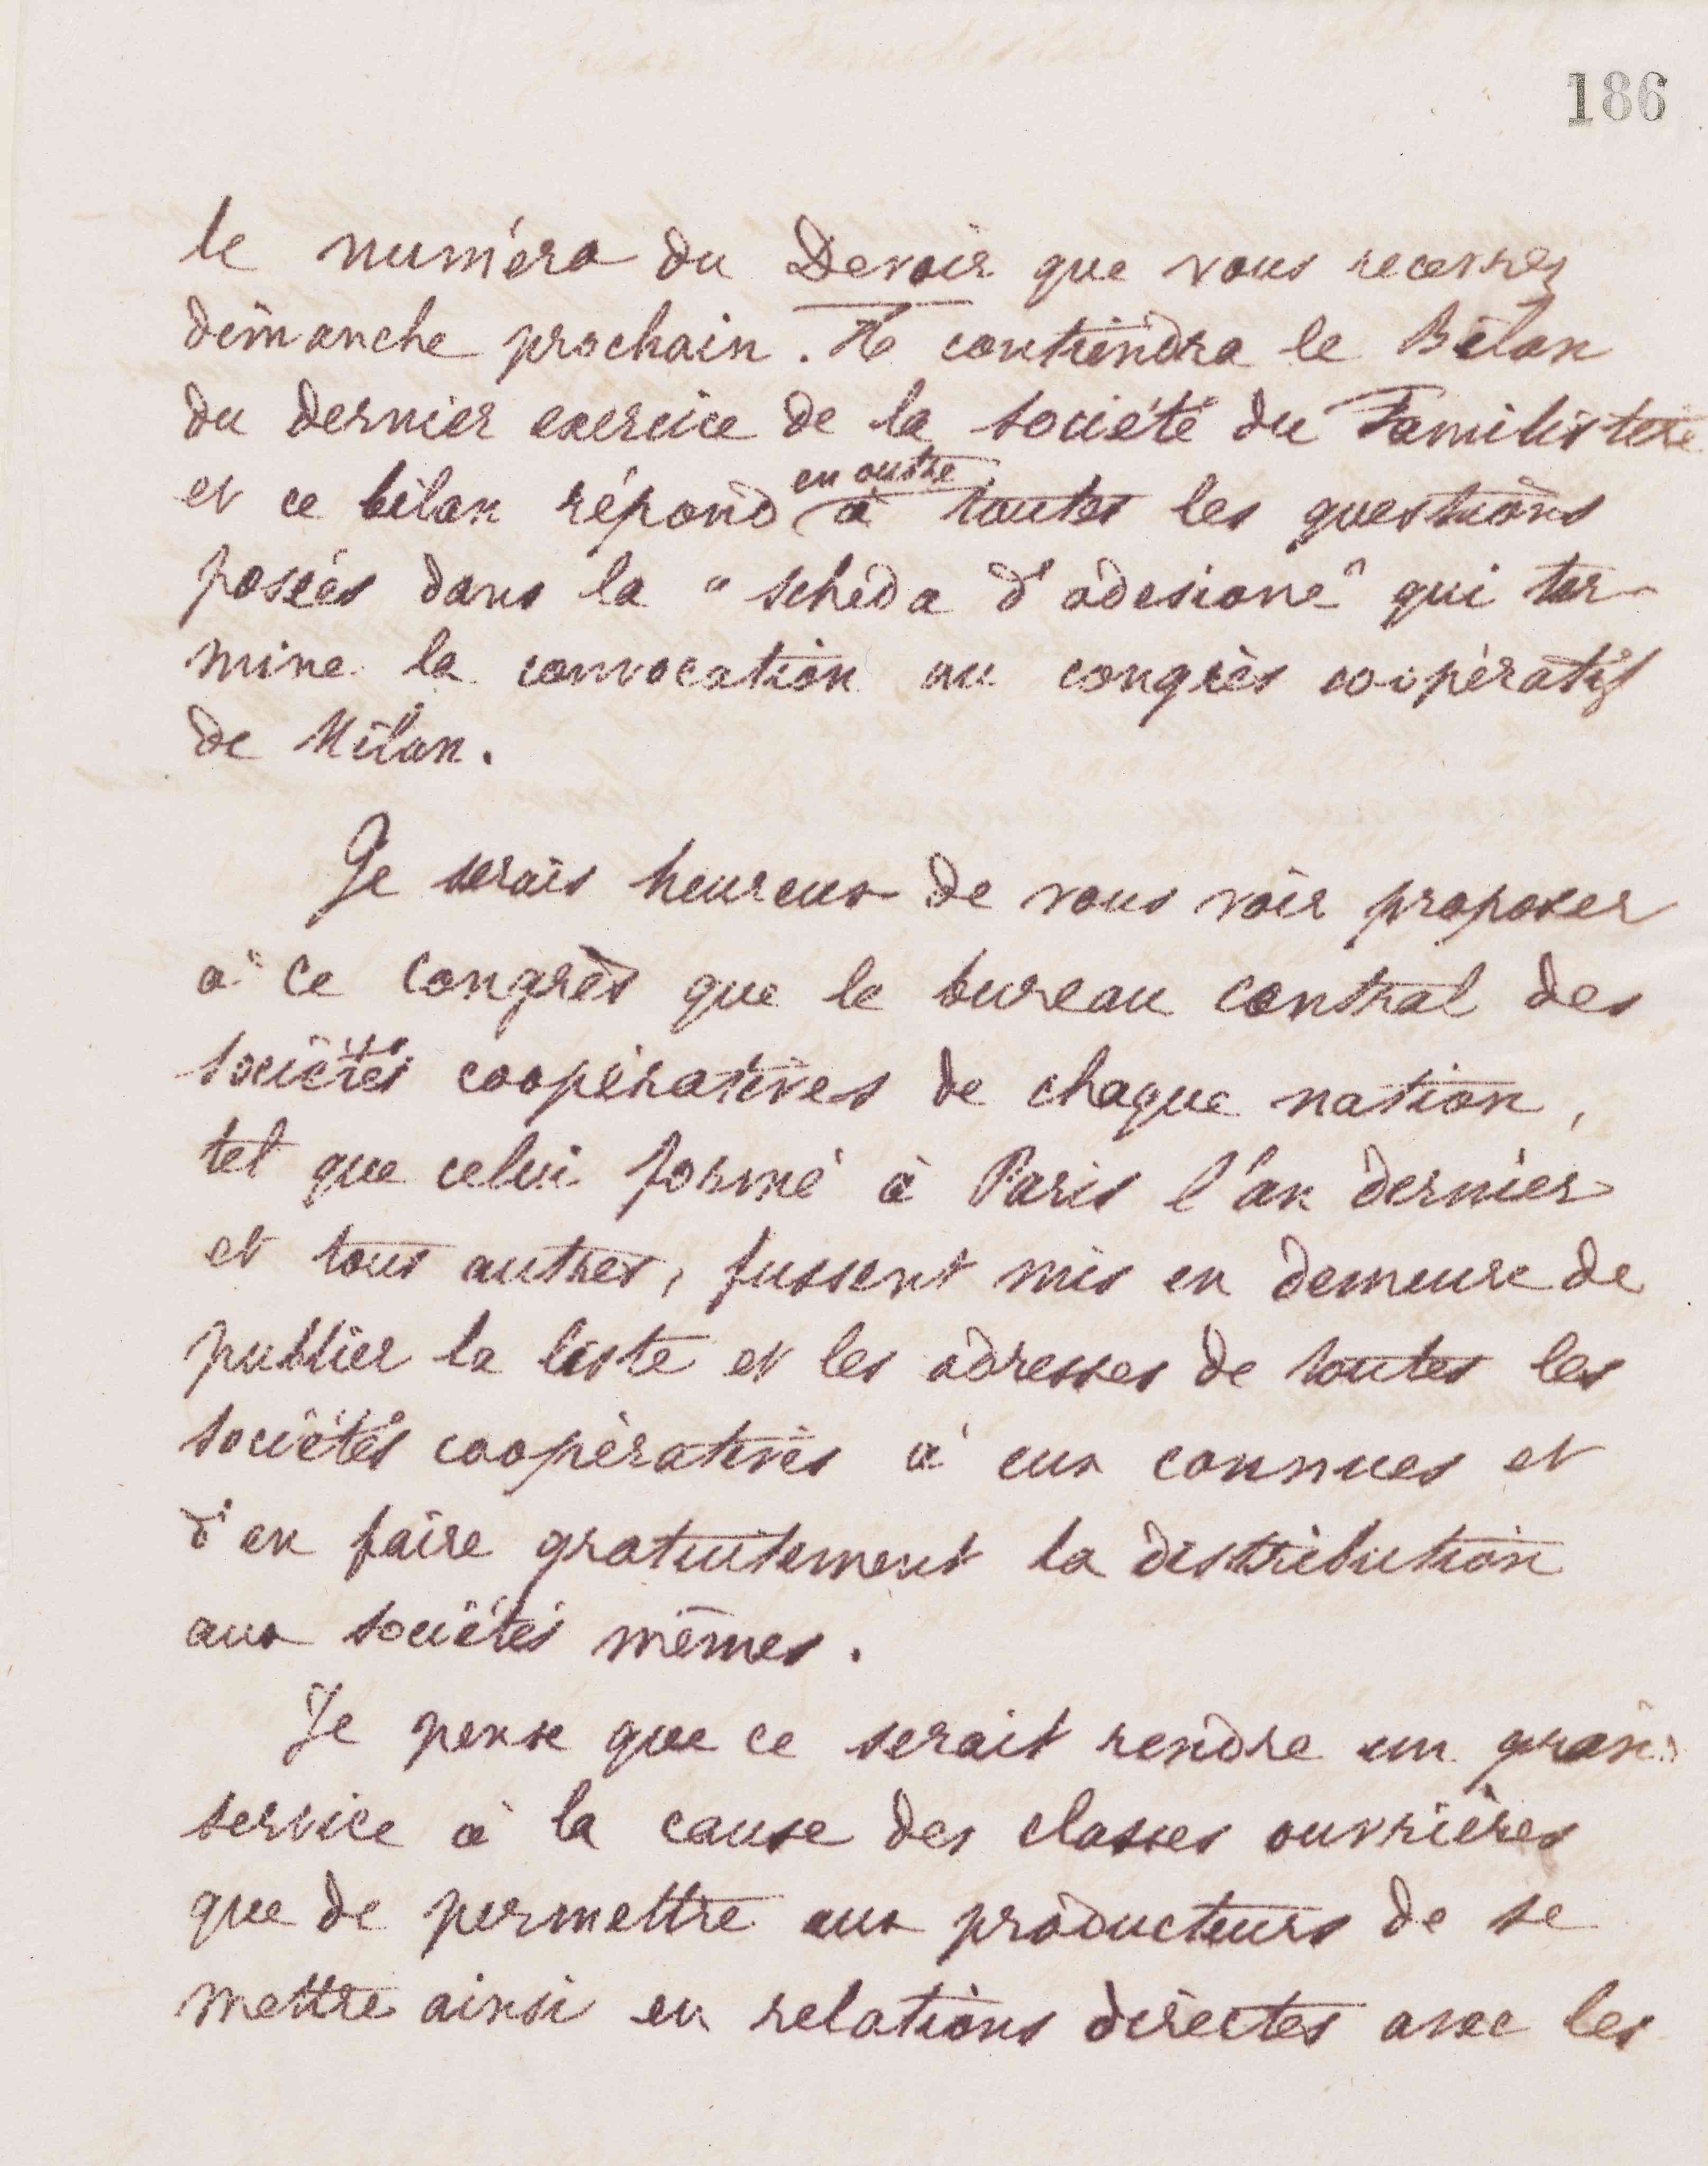 186
le numéro du Devoir que vous recevrez
dimanche prochain. Il contiendra le Bilan
du dernier exercice de la société du Familistère
en outre
et ce bilan répond à toutes les questions
posées dans la "scheda d'adesione" qui ter-
mine la convocation au congrès coopératif
de Milan.
Je serais heureux de vous voir proposer
à ce Congrès que le bureau central des
sociétés coopératives de chaque nation,
tel que celui formé à Paris l'an dernier
et tous autres, fussent mis en demeure de
publier la liste et les adresses de toutes les
sociétés coopératives à eux connues et
d'en faire gratuitement la distribution
aux sociétés mêmes.
Je pense que ce serait rendre un grand
service à la cause des classes ouvrières
que de permettre aux producteurs de se
mettre ainsi en relations directes avec les